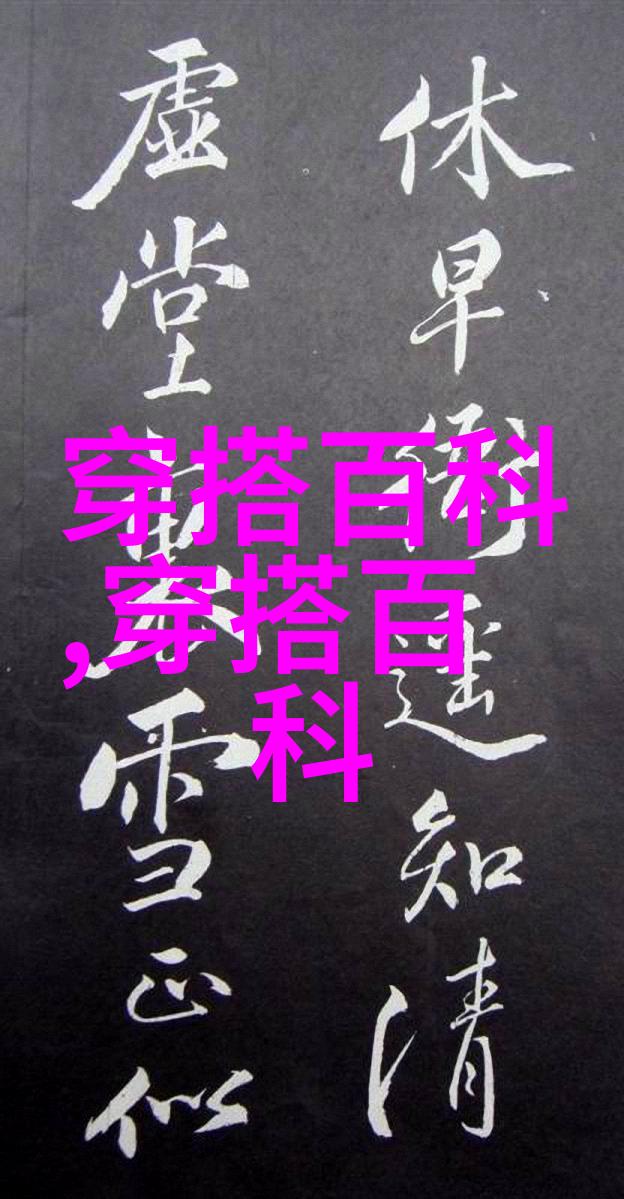 休早衙遥知清
虚堂裏雪正似
穿搭百科
,穿搭百
科